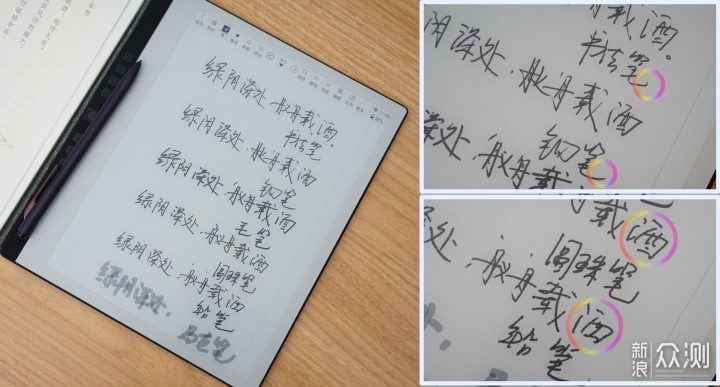 绿阴深处，舣舟载酒。
笔
绿阴深处，舣舟载酒
钢笔
绿阴深处，舣舟载酒
毛笔
绿阴深处，舣舟载酒
圆珠笔
绿阴深处，舣舟载酒
铅笔
绿阴深处，
马克笔
载酒。
笔
阴深处，舣舟载酒
钢笔
深处，舣舟载
载酒
圆珠笔
处，舣舟载酒
铅笔
新浪众测